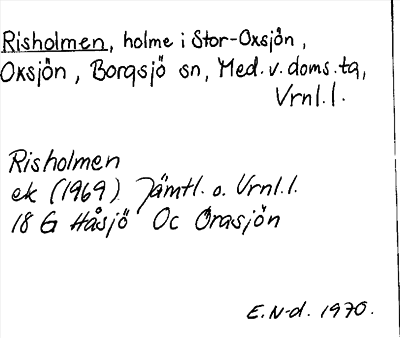 Risholmen, holme i Stor-Oxsjön,
Oxsjön, Borgsjö sn, Med.v.doms.tg,
Vrnl.l.
Risholmen
ek (1969) Jämtl. o. Vrnl.l.
18 G Håsjö Oc Orasjön
E.N-d. 1970.